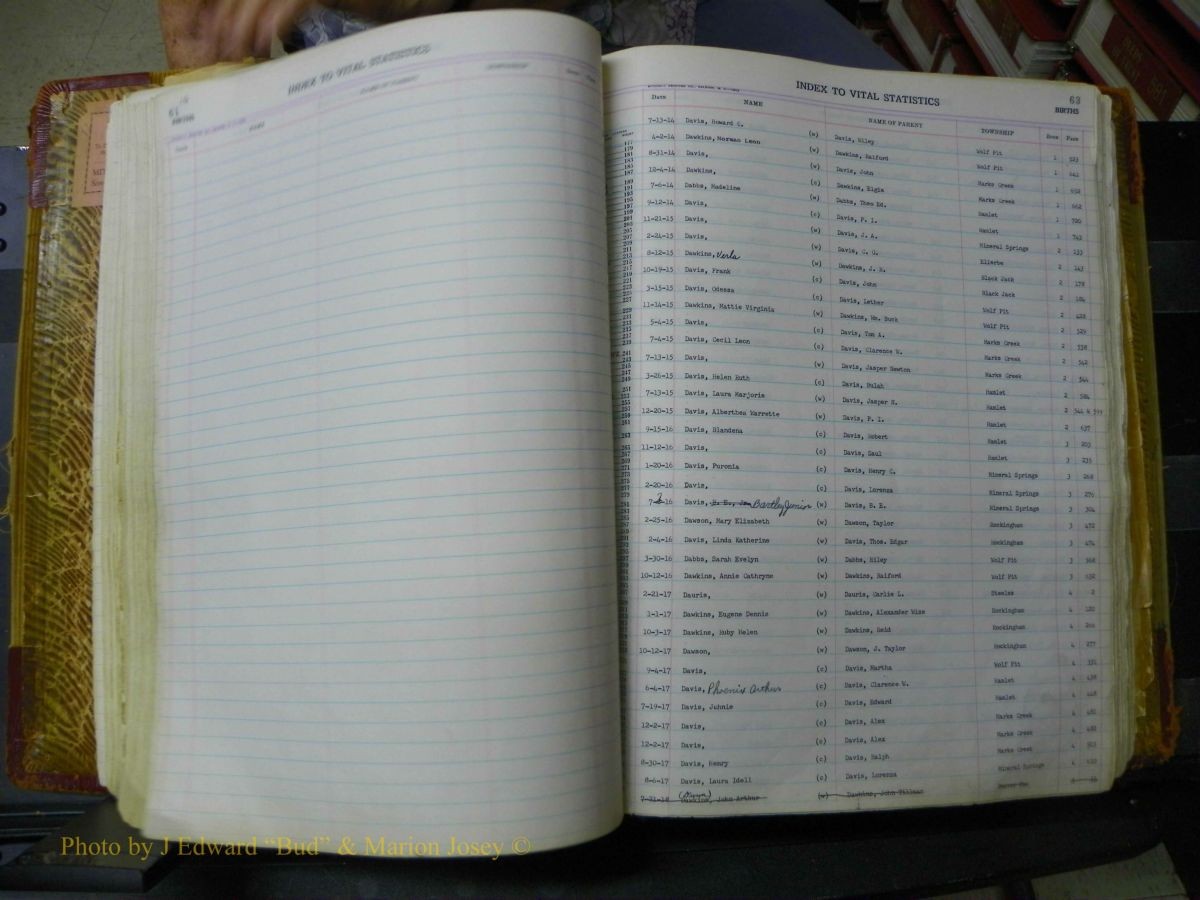 INDEX TO VITAL STATISTICS
BIRTHS
INDEX TO VITAL STATISTICS
63
BIRTHS
Date NAME NAME OF PARENT TOWNSHIP Book Page
7-13-14 Davis, Howard C. (w) Davis, Wiley Wolf Pit 1 523
4-2-14 Dawkins, Norman Leon (w) Dawkins, Raiford Wolf Pit 1
8-31-14 Davis, (w) Davis, John Marks Creek 1
12-4-14 Dawkins, (c) Dawkins, Elgia Marks Creek 1 662
7-6-14 Dabbs, Madeline (w) Dabbs, Theo Ed. Hamlet 1 700
9-12-14 Davis, (c) Davis, P. I. Hamlet 1 743
11-21-15 Davis, (w) Davis, J. A. Mineral Springs 2 133
2-24-15 Davis, (w) Davis, C. G. Ellerbe 2 143
8-12-15 Dawkins, Verla (w) Dawkins, J. R. Black Jack 2 178
10-19-15 Davis, Frank (c) Davis, John Black Jack 2 184
3-15-15 Davis, Odessa (c) Davis, Lether Wolf Pit 2 428
11-14-15 Dawkins, Mattie Virginia (w) Dawkins, Wm. Buck Wolf Pit 2 529
5-4-15 Davis, (c) Davis, Tom A. Marks Creek 2 538
7-4-15 Davis, Cecil Leon (c) Davis, Clarence W. Marks Creek 2 542
7-13-15 Davis, (w) Davis, Jasper Newton Marks Creek 2 544
3-26-15 Davis, Helen Ruth (c) Davis, Bulah Hamlet 2 584
7-13-15 Davis, Laura Marjorie (w) Davis, Jasper N. Hamlet 2 544 & 599
12-20-15 Davis, Alberthea Warrette (w) Davis, P. I. Hamlet 2 637
9-15-16 Davis, Blandena (c) Davis, Robert Hamlet 3 203
11-12-16 Davis, (c) Davis, Saul Hamlet 3 235
1-20-16 Davis, Puronia (c) Davis, Henry C. Mineral Springs 3 268
2-20-16 Davis, (c) Davis, Lorenza Mineral Springs 3 276
7-2-16 Davis, B. E., Jr. Bartley Junior (w) Davis, B. E. Mineral Springs 3 304
2-25-16 Dawson, Mary Elizabeth (w) Dawson, Taylor Rockingham 3 472
2-4-16 Davis, Linda Katherine (w) Davis, Thos. Edgar Rockingham 3 474
3-30-16 Dabbs, Sarah Evelyn (w) Dabbs, Riley Wolf Pit 3 568
10-12-16 Dawkins, Annie Cathryne (w) Dawkins, Raiford Wolf Pit 3 632
2-21-17 Dauris, (w) Dauris, Carlie L. Steeles 4 2
1-1-17 Dawkins, Eugene Dennis (w) Dawkins, Alexander Wise Rockingham 4 180
10-3-17 Dawkins, Ruby Helen (w) Dawkins, Reid Rockingham 4 266
10-12-17 Dawson, (w) Dawson, J. Taylor Rockingham 4 277
9-4-17 Davis, (c) Davis, Martha Wolf Pit 4 331
6-4-17 Davis, Phoenix Arthur (c) Davis, Clarence W. Hamlet 4 438
7-19-17 Davis, Juhnie (c) Davis, Edward Hamlet 4 448
12-2-17 Davis, (c) Davis, Alex Marks Creek 4 481
12-2-17 Davis, (c) Davis, Alex Marks Creek 4 482
8-30-17 Davis, Henry (c) Davis, Ralph Marks Creek 4 503
8-6-17 Davis, Laura Idell (c) Davis, Lorenza Mineral Springs 4
7-21-18 Dawkins, John Arthur (w) Dawkins, John Tillman
Photo by J Edward “Bud” & Marion Josey ©